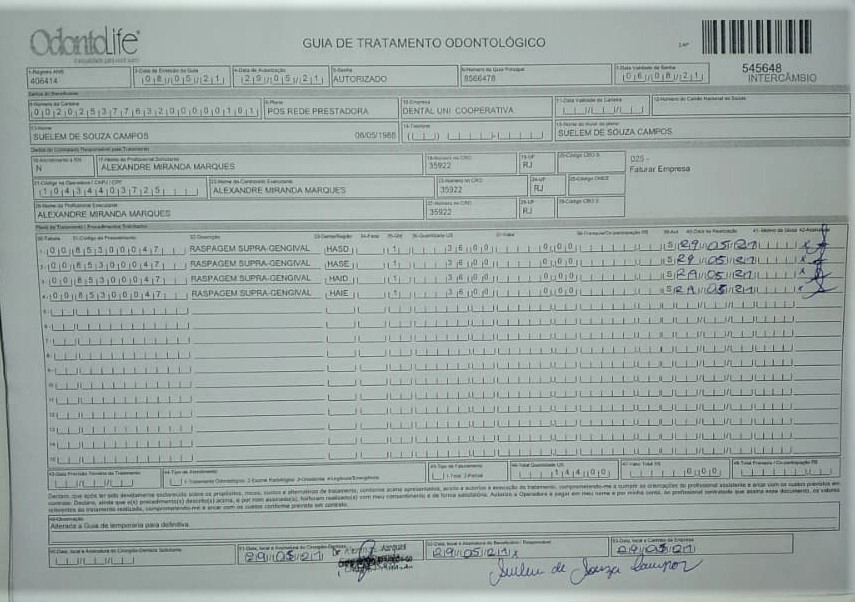 OdontoLife
GUIA DE TRATAMENTO ODONTOLÓGICO
545648
INTERCÂMBIO
1-Registro ANS
406414
2-Data de Emissão da Guia
08/05/21
4-Data de Autorização
29/05/21
5-Senha
AUTORIZADO
6-Número da Guia Principal
8566478
7-Data Validade da Senha
06/08/21
Dados do Beneficiário
8-Número da Carteira
00202537763200000101
9-Plano
POS REDE PRESTADORA
10-Empresa
DENTAL UNI COOPERATIVA
11-Data Validade da Carteira
12-Número do Cartão Nacional de Saúde
13-Nome
SUELEM DE SOUZA CAMPOS
06/05/1988
14-Telefone
SUELEM DE SOUZA CAMPOS
Dados do Contratado Responsável pelo Tratamento
16-Atendimento a RN
N
17-Nome do Profissional Solicitante
ALEXANDRE MIRANDA MARQUES
18-Número no CRO
35922
19-UF
RJ
20-Código CBO S
025 -
Faturar Empresa
21-Código na Operadora / CNPJ / CPF
10434403725
22-Nome do Contratado Executante
ALEXANDRE MIRANDA MARQUES
23-Número no CRO
35922
24-UF
RJ
25-Código CNES
26-Nome do Profissional Executante
ALEXANDRE MIRANDA MARQUES
27-Número no CRO
35922
28-UF
RJ
29-Código CBO S
Plano de Tratamento / Procedimentos Solicitados
30-Tabela 31-Código do Procedimento 32-Descrição 33-Dente/Região 34-Face 35-Qtd 36-Quantidade US 37-Valor 38-Franquia/Co-participação R$ 39-Aut 40-Data de Realização 41-Motivo da Glosa 42-Assinatura
1- 00 85300047 RASPAGEM SUPRA-GENGIVAL HASD 1 36,00 0,00 S 29/05/21 x
2- 00 85300047 RASPAGEM SUPRA-GENGIVAL HASE 1 36,00 0,00 S 29/05/21 x
3- 00 85300047 RASPAGEM SUPRA-GENGIVAL HAID 1 36,00 0,00 S 29/05/21 x
4- 00 85300047 RASPAGEM SUPRA-GENGIVAL HAIE 1 36,00 0,00 S 29/05/21 x
5-
6-
7-
8-
9-
10-
11-
12-
13-
14-
15-
43-Data Previsão Término do Tratamento
44-Tipo de Atendimento
1-Tratamento Odontológico 2-Exame Radiológico 3-Ortodontia 4-Urgência/Emergência
45-Tipo de Faturamento
1-Total 2-Parcial
46-Total Quantidade US
144,00
47-Valor Total R$
0,00
48-Total Franquia / Co-participação R$
Declaro, que após ter sido devidamente esclarecido sobre os propósitos, riscos, custos e alternativas de tratamento, conforme acima apresentados, aceito e autorizo a execução do tratamento, comprometendo-me a cumprir as orientações do profissional assistente e arcar com os custos previstos em
contrato. Declaro, ainda que o(s) procedimento(s) descrito(s) acima, e por mim assinado(s), foi/foram realizado(s) com meu consentimento e de forma satisfatória. Autorizo a Operadora a pagar em meu nome e por minha conta, ao profissional contratado que assina esse documento, os valores
referentes ao tratamento realizado, comprometendo-me a arcar com os custos conforme previsto em contrato.
49-Observação
Alterada a Guia de temporaria para definitiva.
50-Data, local e Assinatura do Cirurgião-Dentista Solicitante
51-Data, local e Assinatura do Cirurgião-Dentista
29/05/21
52-Data, local e Assinatura do Beneficiário / Responsável
29/05/21 x
53-Data, local e Carimbo da Empresa
29/05/21
Suelem de Souza Campos